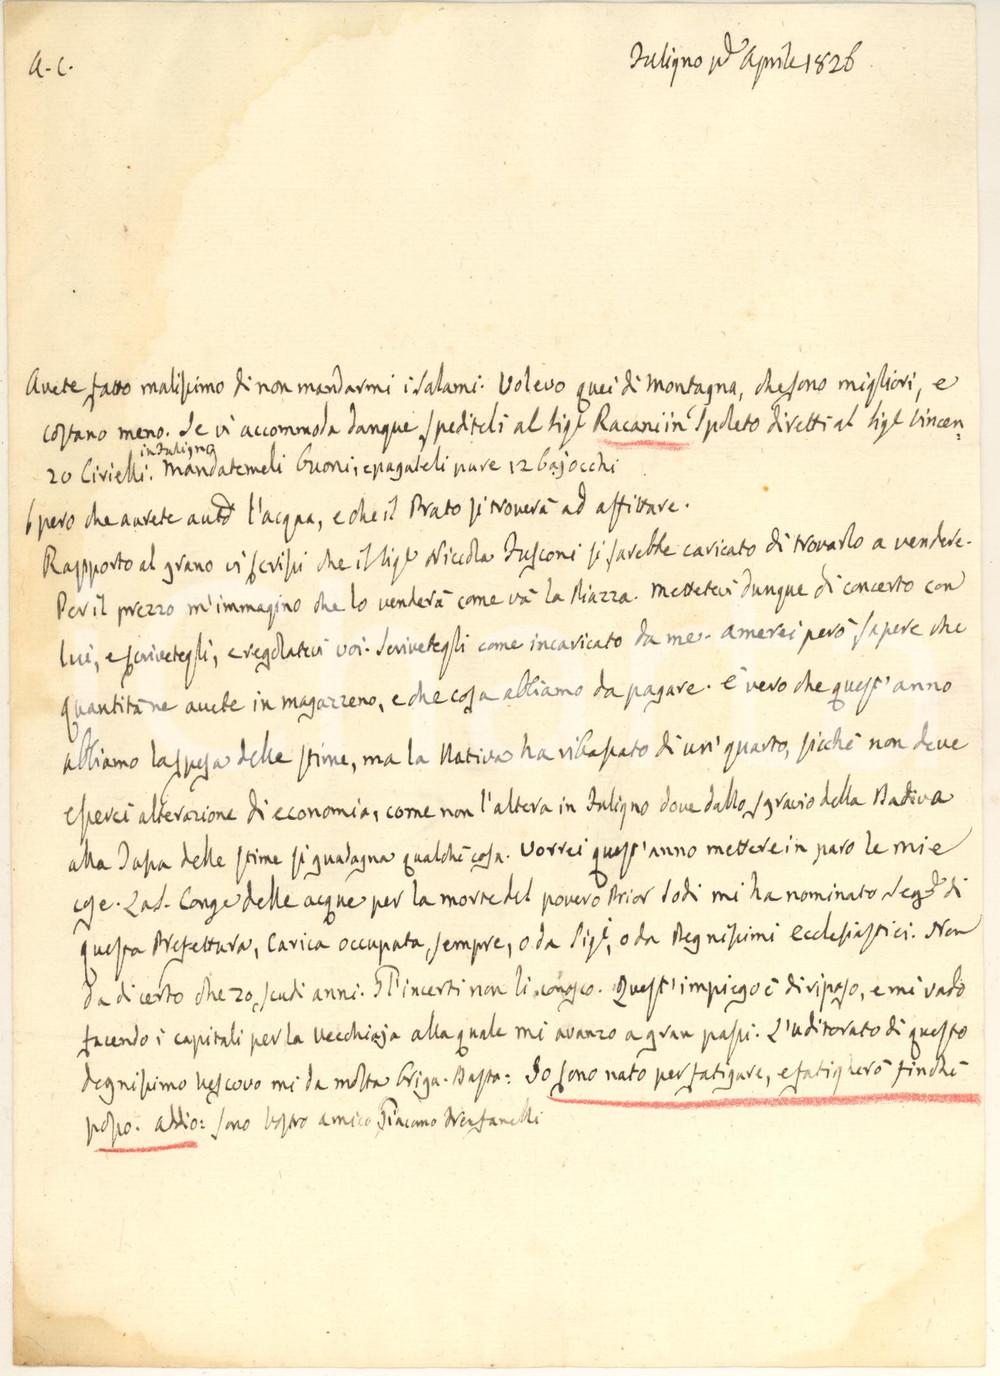 A. C.
Fuligno p.º Aprile 1826
Avete fatto malissimo di non mandarmi i Salami. Volevo quei di Montagna, che sono migliori, e
costano meno. Se vi accommoda dunque, spediteli al Sig.r Racani in Spoleto diretti al Sig.r Vincen=
in Fuligno
zo Civielli. Mandatemeli buoni, e pagateli pure 12 bajocchi
Spero che avrete avuto l'acqua, e che il Prato si troverà ad affittare.
Rapporto al grano vi scrissi che il Sig.r Niccola Fusconi si sarebbe caricato di trovarlo a vendere.
Per il prezzo m'immagino che lo venderà come và la Piazza. Mettetevi dunque di concerto con
lui, e scrivetegli, e regolatevi voi. Scrivetegli come incaricato da me. Amerei però sapere che
quantità ne avete in magazzeno, e che cosa abbiamo da pagare. È vero che quest'anno
abbiamo la spesa delle stime, ma la Nativa ha ribassato di un' quarto, sicchè non deve
esserci alterazione di economia, come non l'altera in Fuligno dove dallo sgravio della Dativa
alla Tassa delle stime si guadagna qualchè cosa. Vorrei quest'anno mettere in paro le mie
cose. La S. Cong.e delle acque per la morte del povero Prior Sodi mi ha nominato Seg.rio di
questa Prefettura, Carica occupata sempre, o da Sig.ri, o da Degnissimi Ecclesiastici. Non
dà di certo che 20 scudi anni. Gl'incerti non li conosco. Quest'impiego è di riposo, e mi vadò
facendo i capitali per la vecchiaja alla quale mi avanzo a gran passi. L'uditorato di questo
degnissimo Vescovo mi da molta briga. Basta: Io sono nato per fatigare, e fatigherò finchè
posso. Addio: sono vostro amico Giacomo